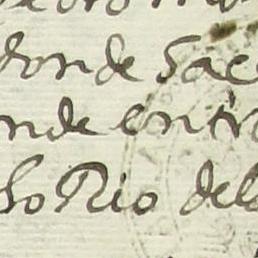 donde Sac
nde entr
ho Rio dela